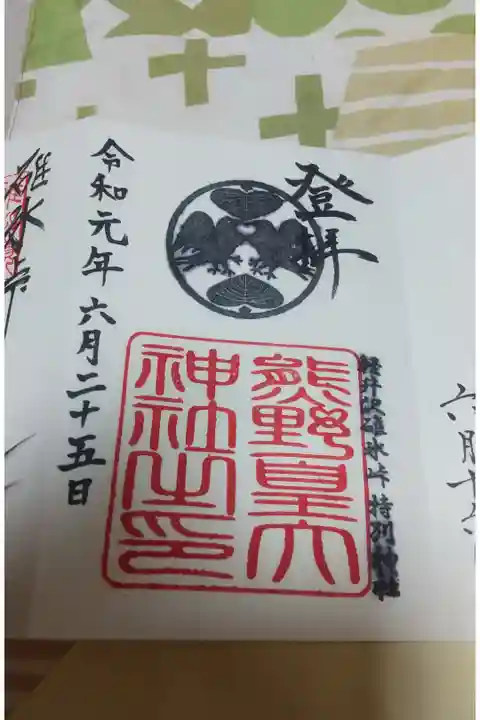 登拝
軽井沢碓氷峠 特別神社
熊野皇大
神社之印
令和元年六月二十五日
碓氷峠
六月十